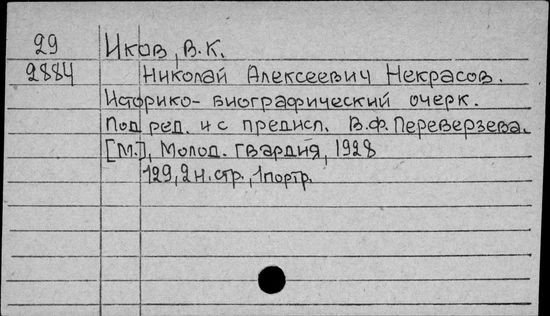 29 Иков, В.К.
2884 Николай Алексеевич Некрасов.
Историко-биографический очерк.
Под ред. и с предисл. В.Ф. Переверзева.
[М.], Молод. гвардия, 1928
129, 2 н. стр., 1 портр.